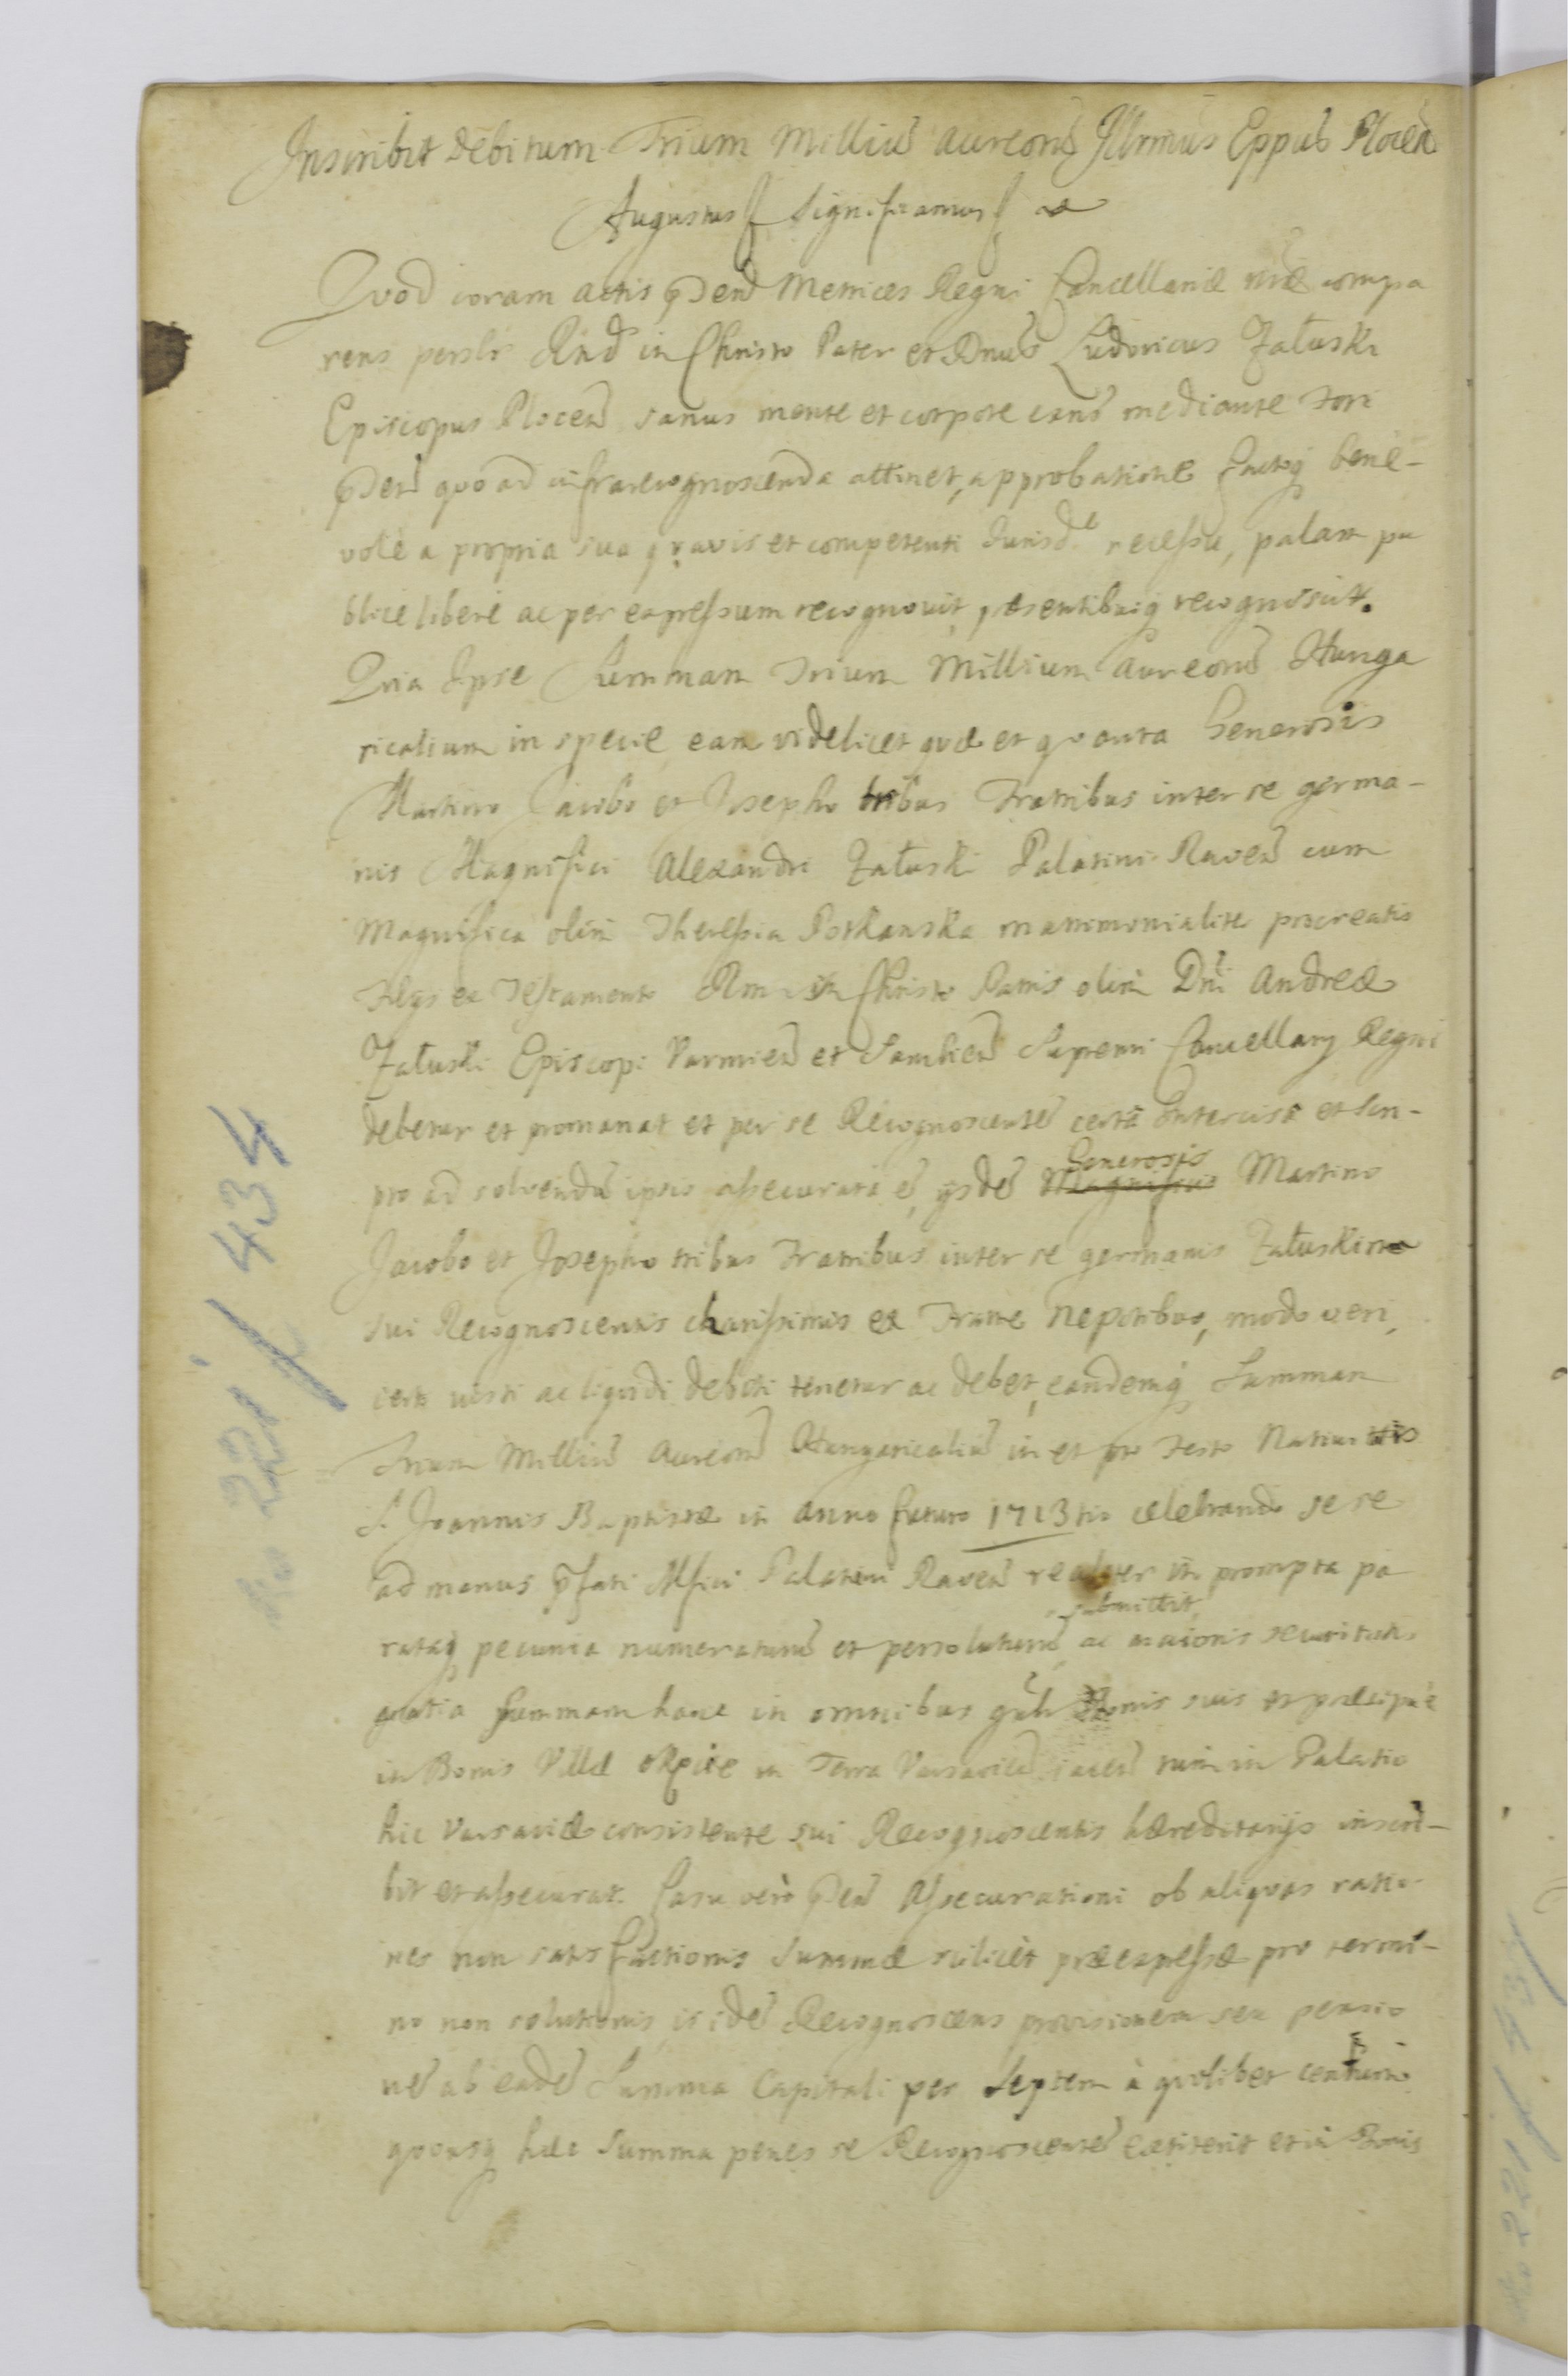 Inscribit debitum Trium Milliũ aureorũ Illrmus Eppus Plocen̄
Augustus significamus &
Quod coram actis p̄den̄ Metrices Regni Cancellariæ nr̄æ compa
rens persłr Rn̄d in Christo Pater et Dn̄us Ludovicus Załuski
Episcopus Plocen̄ sanus mente et corpore existens mediante fori
p̄den̄ quo ad infrarecognoscenda attinet, approbatione factoq bene-
vole a propria sua quavis et competenti Jurisd.e recessu, palam pu
blice libere ac per expressum recognovit, præsentibusq recognoscit.
Quia Ipse Summam Trium Millium Aureorũ Hunga
ricalium in specie, eam videlicet quæ et quanta Generosis
Martino Jacobo et Josepho tribus Fratribus inter se germa-
nis Magnifici Alexandri Załuski Palatini Raven̄ cum
Magnifica olim Theressia Potkanska matrimonialite procreatis
Filijs ex Testamento Rm in Christo Patris olim Dn̄i Andreæ
Załuski Episcopi Varmien̄ et Sambien̄ Supremi Cancellarij Regni
debetur et promanat et per se Recognoscentẽ certa Intercisa et Scri-
pro ad solvendũ ipsis assecurata ẽ, ijsdẽ Magnificis Generosis Martino
Jacobo et Josepho tribus Fratribus inter se germanis Załuskim
sui Recognoscentis charissimis ex Fratre Nepotibus, modo veri,
certi iusti ac liquidi debiti tenetur ac debet, eandemq Summam
Trium Milliũ Aureorũ Hungaricaliũ in et pro Festo Nativitatis
S. Joannis Baptistæ in anno futuro 1713tio celebrando se se
ad manus p̄fati Mfici Palatini Raven̄ realiter in prompta pa
rataq pecunia numeraturũ et persoluturũ submittit, ac maioris securitatis
gratia summam hanc in omnibus gn̄lr Bonis suis et præcipue
in Bonis Villæ in Terra Varsavien̄ iacen̄ tum in Palatio
hic Varsaviæ consistente sui Recognoscentis hæreditarijs inscri-
bit et assecurat. Casu vero p̄den̄ Assecurationi ob aliquas ratio
nes non satisfactionis Summæ scilicet præexpressæ pro termi-
no non solutionis is idẽ Recognoscens provisionem seu pensio
nẽ ab eadẽ Summa Capitali per Septem à quolibet centum
quousq hæc Summa penes se Recognoscentẽ extiterit et in Bonis
No 221 / 434